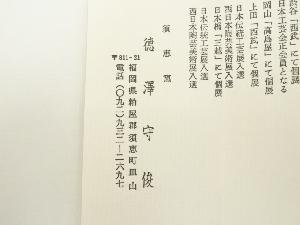 渋谷「西武」にて個展
日本工芸会正会員となる
岡山「高島屋」にて個展
上田「西武」にて個展
日本伝統工芸展入選
西日本陶芸美術展入選
日本橋「三越」にて個展
日本伝統工芸展入選
西日本陶芸美術展入選
須恵窯
德澤守俊
〒811-21
福岡県粕屋郡須恵町皿山
電話(〇九二)九三二―二六九七